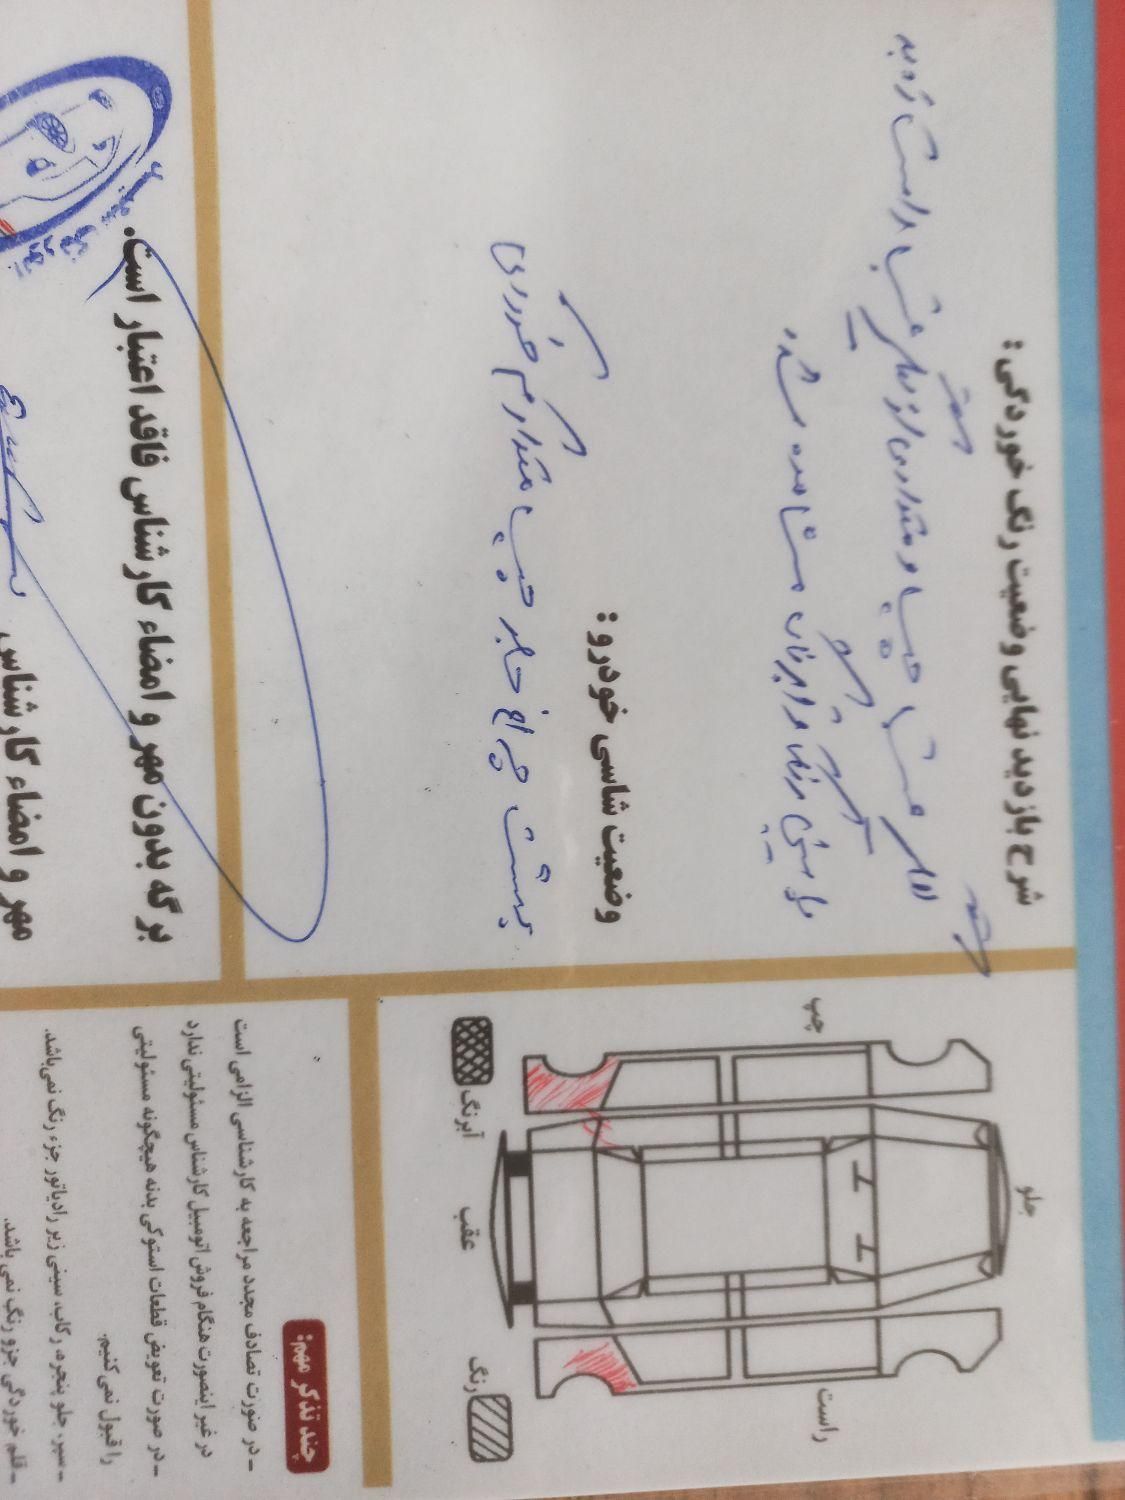 شرح بازدید نهایی وضعیت رنگ خوردگی :
گلگیر عقب چپ و مقداری از گلگیر عقب راست رو به
پایین رنگ و ابرنگ مشاهده شد
وضعیت شاسی خودرو :
پشت چراغ خطر چپ مقدار کم خوردگی
برگه بدون مهر و امضاء کارشناس فاقد اعتبار است.
مهر و امضاء کارشناس
جلو
چپ
راست
عقب
آبرنگ
رنگ
چند تذکر مهم:
ـ در صورت تصادف مجدد مراجعه به کارشناسی الزامی است
در غیر اینصورت هنگام فروش اتومبیل کارشناس مسئولیتی ندارد
ـ در صورت تعویض قطعات استوکی بدنه هیچگونه مسئولیتی
را قبول نمی‌کنیم.
ـ سپر، جلو پنجره، رکاب، سینی زیر رادیاتور جزء رنگ نمی‌باشد.
ـ قلم خوردگی جزو رنگ نمی باشد.